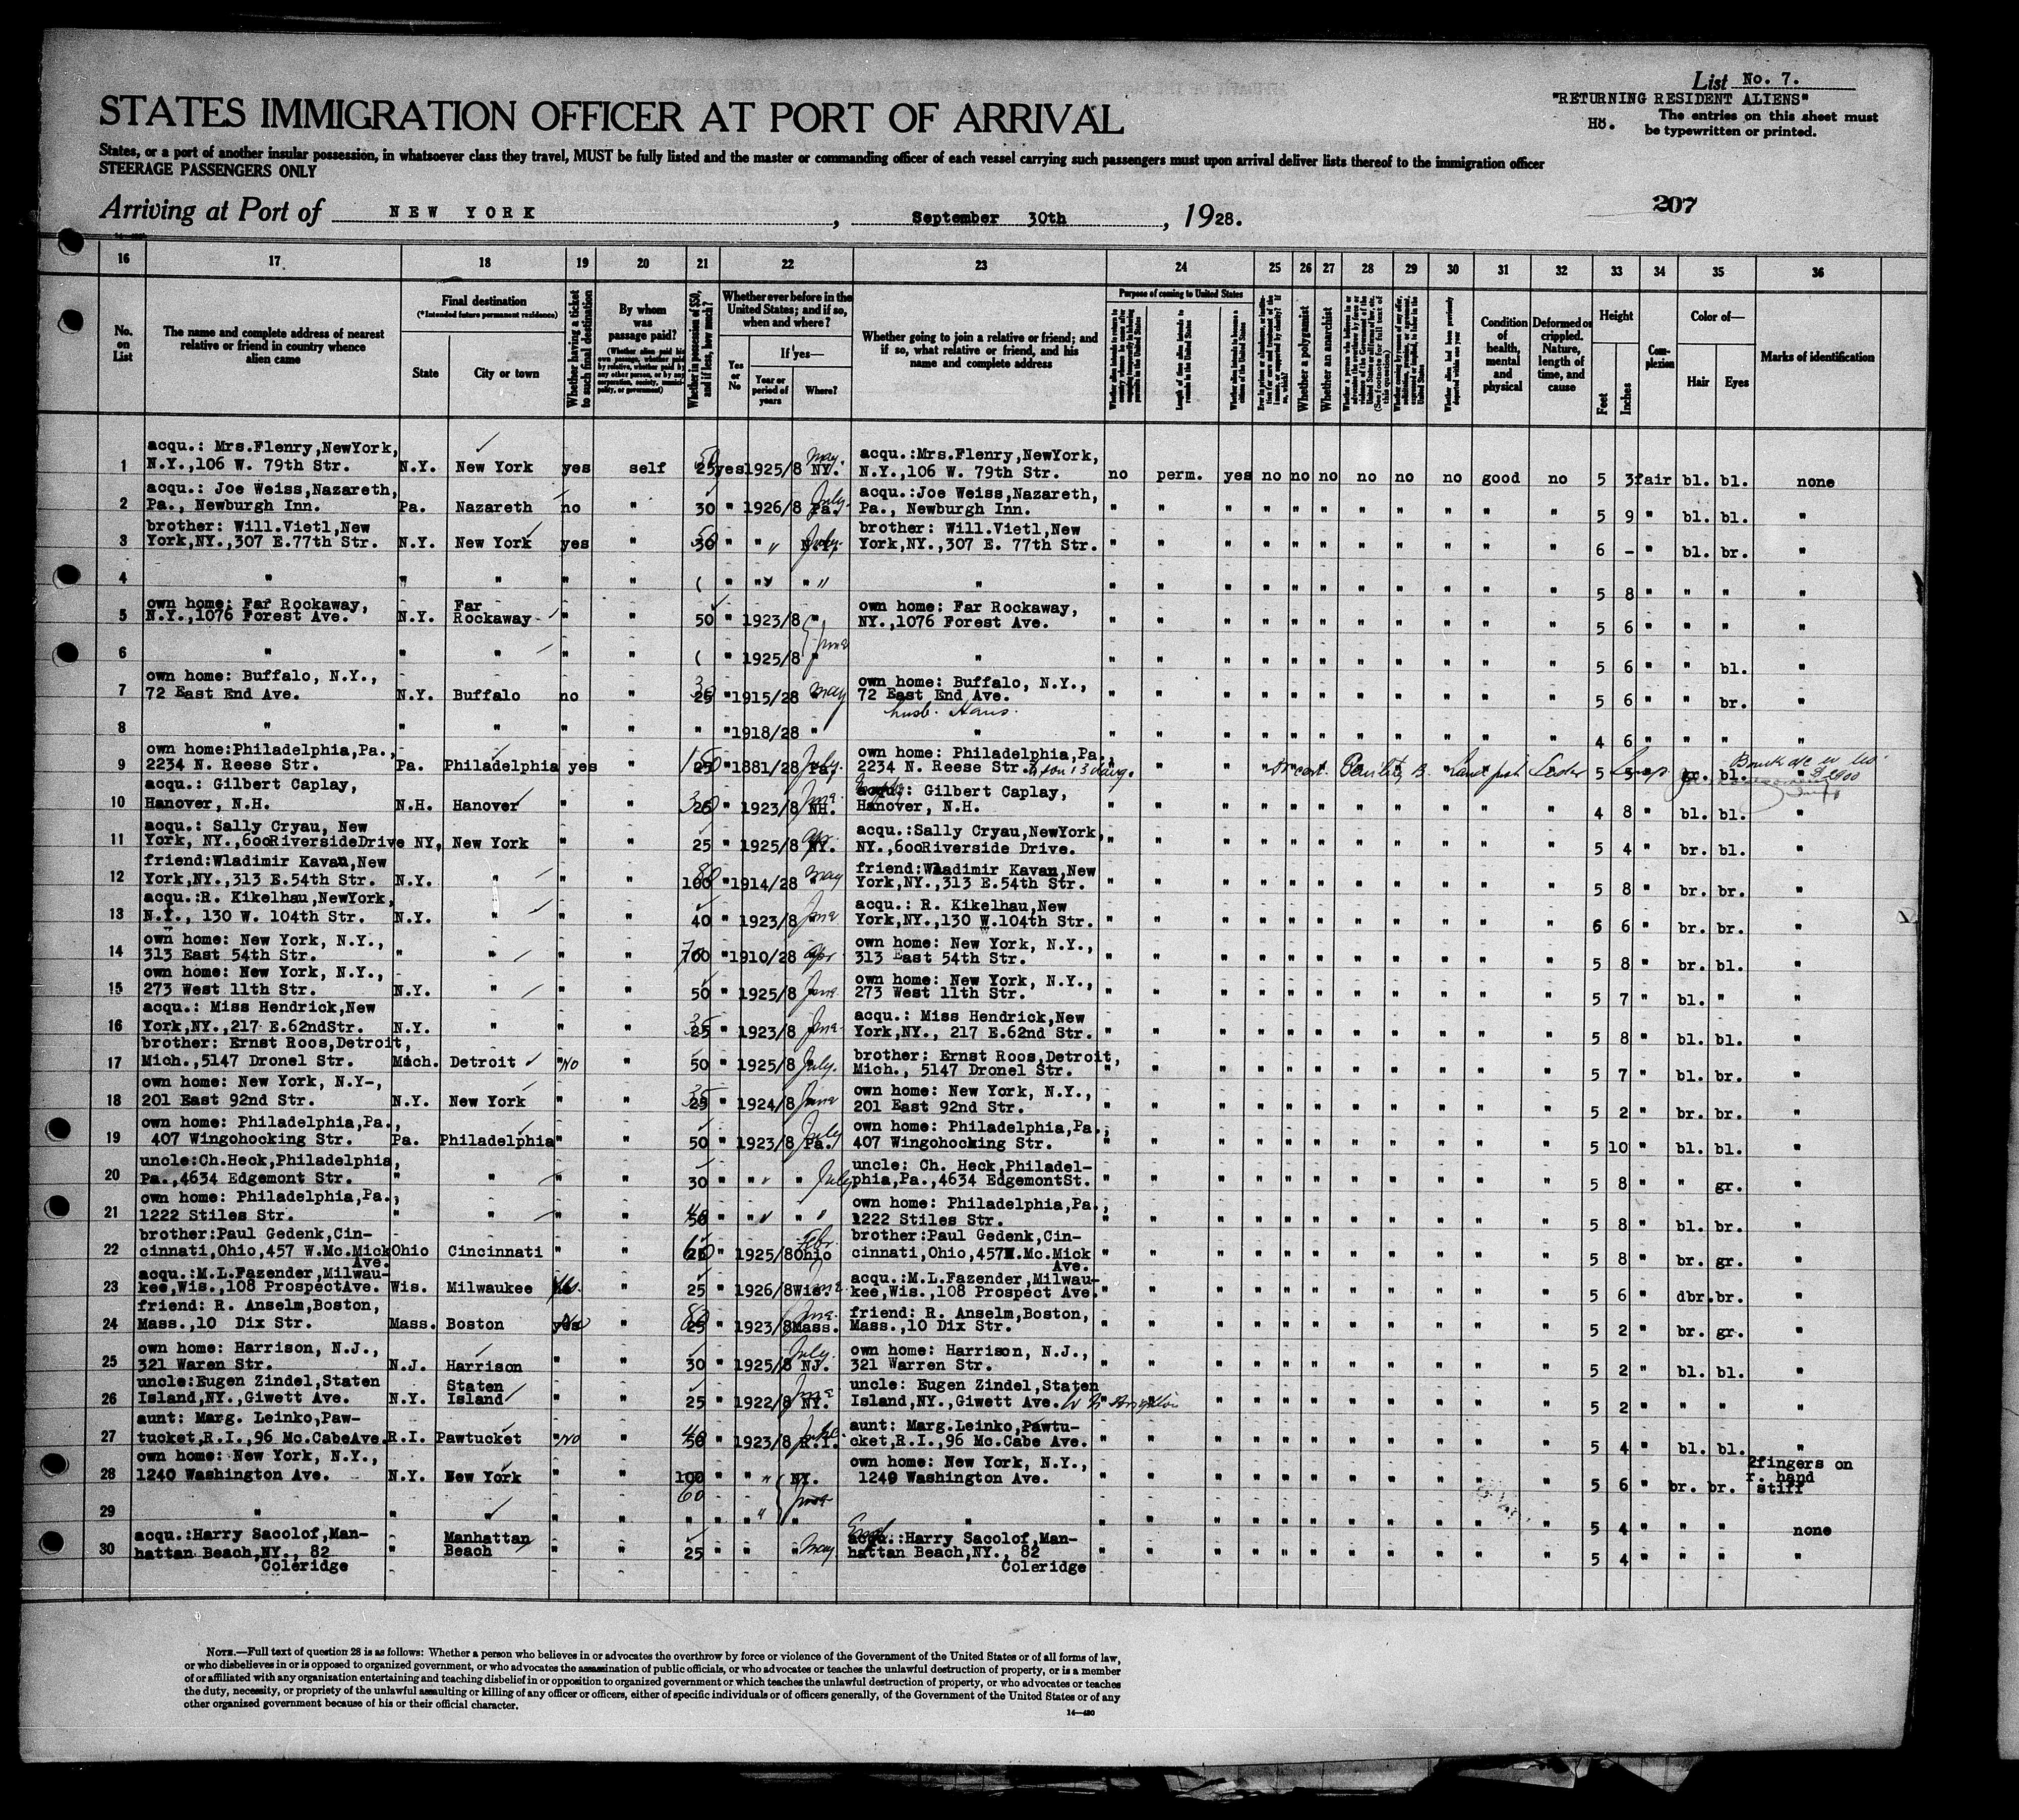 List No. 7.
"RETURNING RESIDENT ALIENS"
STATES IMMIGRATION OFFICER AT PORT OF ARRIVAL
H8. The entries on this sheet must
be typewritten or printed.
States, or a port of another insular possession, in whatsoever class they travel, MUST be fully listed and the master or commanding officer of each vessel carrying such passengers must upon arrival deliver lists thereof to the immigration officer
STEERAGE PASSENGERS ONLY
207
Arriving at Port of NEW YORK, September 30th, 1928.
16 17 18 19 20 21 22 23 24 25 26 27 28 29 30 31 32 33 34 35 36
No. on List
The name and complete address of nearest relative or friend in country whence alien came
Final destination
(*Intended future permanent residence)
State
City or town
Whether having a ticket to such final destination
By whom was passage paid?
(Whether alien paid his own passage, whether paid by relative, whether paid by any other person, or by any corporation, society, municipality, or government)
Whether in possession of $50, and if less, how much?
Whether ever before in the United States; and if so, when and where?
Yes or No
If yes—
Year or period of years
Where?
Whether going to join a relative or friend; and if so, what relative or friend, and his name and complete address
Purpose of coming to United States
Length of time alien intends to remain in the United States
Whether alien intends to become a citizen of the United States
Whether a polygamist
Whether an anarchist
Condition of health, mental and physical
Deformed or crippled. Nature, length of time, and cause
Height
Feet
Inches
Complexion
Color of—
Hair
Eyes
Marks of identification
acqu.: Mrs.Flenry,NewYork, acqu.:Mrs.Flenry,NewYork,
1 N.Y.,106 W. 79th Str. N.Y. New York yes self 25 yes 1925/8 NY. May. N.Y.,106 W. 79th Str. no perm. yes no no no no no no good no 5 3 fair bl. bl. none
acqu.: Joe Weiss,Nazareth, acqu.:Joe Weiss,Nazareth,
2 Pa., Newburgh Inn. Pa. Nazareth no " 30 " 1926/8 Pa. July. Pa., Newburgh Inn. " " " " " " " " " " " 5 9 " bl. bl. "
brother: Will.Vietl,New brother: Will.Vietl,New
3 York,NY.,307 E.77th Str. N.Y. New York yes " 30 " " N.Y. July. York,NY.,307 E. 77th Str. " " " " " " " " " " " 6 - " bl. br. "
4 " " " " " ( " " " " " " " " " " " " " " " " 5 8 " " " "
own home: Far Rockaway, Far own home: Far Rockaway,
5 N.Y.,1076 Forest Ave. N.Y. Rockaway " " 50 " 1923/8 " NY.,1076 Forest Ave. " " " " " " " " " " " 5 6 " " " "
6 " " " " " ( " 1925/8 " June " " " " " " " " " " " " 5 6 " " bl. "
own home: Buffalo, N.Y., own home: Buffalo, N.Y.,
7 72 East End Ave. N.Y. Buffalo no " 25 " 1915/28 " May 72 East End Ave. " " " " " " " " " " " 5 6 " " br. "
husb. Hans.
8 " " " " " " " 1918/28 " " " " " " " " " " " " " 4 6 " " " "
own home:Philadelphia,Pa., own home: Philadelphia,Pa.,
9 2234 N. Reese Str. Pa. Philadelphia yes " 25 " 1881/28 Pa. July. 2234 N. Reese Str. 5 3 gr. bl. "
acqu.: Gilbert Caplay, acqu.: Gilbert Caplay,
10 Hanover, N.H. N.H. Hanover " " " 1923/8 NH. June. Hanover, N.H. " " " " " " " " " " " 4 8 " bl. bl. "
acqu.: Sally Cryau, New acqu.:Sally Cryau,NewYork,
11 York, NY.,600RiversideDrive NY, New York " " 25 " 1925/8 NY. Apr. NY.,600Riverside Drive. " " " " " " " " " " " 5 4 " br. bl. "
friend:Wladimir Kavan,New friend:Wladimir Kavan,New
12 York,NY.,313 E.54th Str. N.Y. " " " 100 " 1914/28 " May York,NY.,313 E.54th Str. " " " " " " " " " " " 5 8 " br. br. "
acqu.:R. Kikelhau,NewYork, acqu.: R. Kikelhau,New
13 N.Y., 130 W. 104th Str. N.Y. " " " 40 " 1923/8 June York,NY.,130 W.104th Str. " " " " " " " " " " " 6 6 " br. br. "
own home: New York, N.Y., own home: New York, N.Y.,
14 313 East 54th Str. " " " " 700 " 1910/28 Apr 313 East 54th Str. " " " " " " " " " " " 5 8 " br. bl. "
own home: New York, N.Y., own home: New York, N.Y.,
15 273 West 11th Str. N.Y. " " " 50 " 1925/8 June 273 West 11th Str. " " " " " " " " " " " 5 7 " bl. " "
acqu.: Miss Hendrick,New acqu.: Miss Hendrick,New
16 York,NY.,217 E.62ndStr. N.Y. " " " 25 " 1923/8 June York,NY., 217 E.62nd Str. " " " " " " " " " " " 5 8 " bl. bl. "
brother: Ernst Roos,Detroit, brother: Ernst Roos,Detroit,
17 Mich.,5147 Dronel Str. Mich. Detroit " No " 50 " 1925/8 July. Mich., 5147 Dronel Str. " " " " " " " " " " " 5 7 " bl. br. "
own home: New York, N.Y-, own home: New York, N.Y.,
18 201 East 92nd Str. N.Y. New York " " 25 " 1924/8 June 201 East 92nd Str. " " " " " " " " " " " 5 2 " br. br. "
own home: Philadelphia,Pa., own home: Philadelphia,Pa.,
19 407 Wingohocking Str. Pa. Philadelphia " " 50 " 1923/8 Pa. July 407 Wingohocking Str. " " " " " " " " " " " 5 10 " bl. bl. "
uncle:Ch.Heck,Philadelphia, uncle: Ch. Heck,Philadel-
20 Pa.,4634 Edgemont Str. " " " " 30 " " " July phia,Pa.,4634 EdgemontSt. " " " " " " " " " " " 5 8 " " gr. "
own home: Philadelphia,Pa., own home: Philadelphia,Pa.,
21 1222 Stiles Str. " " " " 50 " " " 1222 Stiles Str. " " " " " " " " " " " 5 8 " bl. br. "
brother:Paul Gedenk,Cin- brother:Paul Gedenk,Cin-
22 cinnati,Ohio,457 W.Mc.Mick Ohio Cincinnati " " " 1925/8 Ohio Febr. cinnati,Ohio,457W.Mc.Mick " " " " " " " " " " " 5 8 " br. gr. "
Ave. Ave.
acqu.:M.L.Fazender,Milwau- acqu.:M.L.Fazender,Milwau-
23 kee,Wis.,108 ProspectAve. Wis. Milwaukee " 25 " 1926/8 Wis. June kee,Wis.,108 Prospect Ave. " " " " " " " " " " " 5 6 " dbr. br. "
friend: R. Anselm,Boston, friend: R. Anselm,Boston,
24 Mass.,10 Dix Str. Mass. Boston yes No " 25 " 1923/8 Mass. June Mass.,10 Dix Str. " " " " " " " " " " " 5 2 " br. gr. "
own home: Harrison, N.J., own home: Harrison, N.J.,
25 321 Waren Str. N.J. Harrison " " 30 " 1925/8 NJ. July. 321 Warren Str. " " " " " " " " " " " 5 2 " bl. bl. "
uncle:Eugen Zindel,Staten Staten uncle: Eugen Zindel,Staten
26 Island,NY.,Giwett Ave. N.Y. Island " " 25 " 1922/8 NY. June Island,NY.,Giwett Ave. " " " " " " " " " " " 5 2 " " " "
aunt: Marg. Leinko,Paw- aunt: Marg.Leinko,Pawtu-
27 tucket,R.I.,96 Mc.CabeAve. R.I. Pawtucket " No " 50 " 1923/8 R.I. cket,R.I.,96 Mc.Cabe Ave. " " " " " " " " " " " 5 4 " bl. bl. "
own home: New York, N.Y., own home: New York, N.Y., 2fingers on
28 1240 Washington Ave. N.Y. New York " " 100 " " NY. 1240 Washington Ave. " " " " " " " " " " " 5 6 " br. br. r. hand stiff
60 June
29 " " " " " " " " " " " " " " " " " " " " " 5 4 " " " none
acqu.:Harry Sacolof,Man- Manhattan acqu.:Harry Sacolof,Man-
30 hattan Beach,NY., 82 " Beach " " 25 " " " May. hattan Beach,NY., 82 " " " " " " " " " " " 5 4 " " " "
Coleridge Coleridge
NOTE.—Full text of question 28 is as follows: Whether a person who believes in or advocates the overthrow by force or violence of the Government of the United States or of all forms of law,
or who disbelieves in or is opposed to organized government, or who advocates the assassination of public officials, or who advocates or teaches the unlawful destruction of property, or is a member
of or affiliated with any organization entertaining and teaching disbelief in or opposition to organized government or which teaches the unlawful destruction of property, or who advocates or teaches
the duty, necessity, or propriety of the unlawful assaulting or killing of any officer or officers, either of specific individuals or of officers generally, of the Government of the United States or of any
other organized government because of his or their official character.
14—480